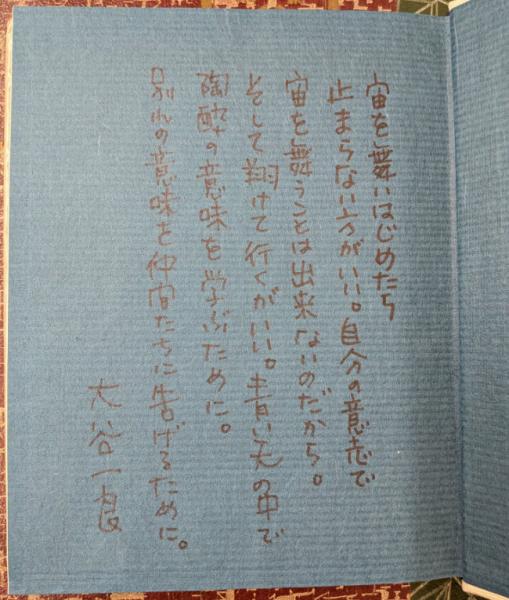 宙を舞いはじめたら
止まらない方がいい。自分の意志で
宙を舞うことは出来ないのだから。
そして翔けて行くがいい。青い天の中で
陶酔の意味を学ぶために。
別れの意味を仲間たちに告げるために。
大谷一良